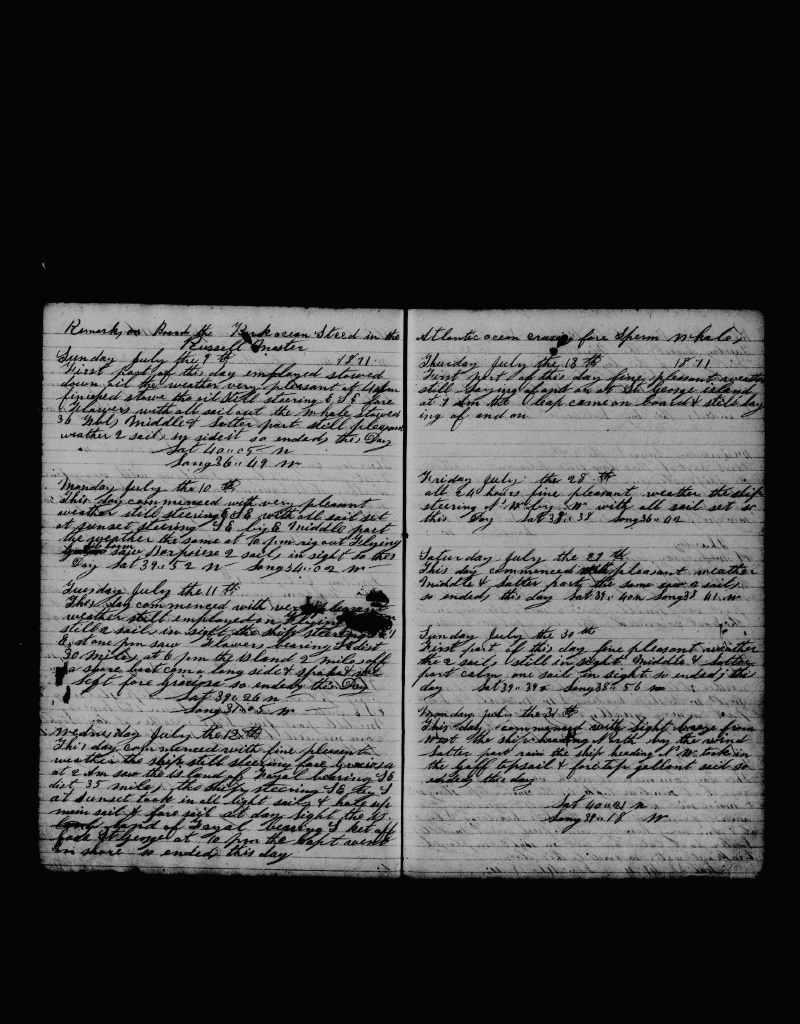 Remarks on Board the Bark ocean Steed in the
Russell Master
Sunday July the 9 th 1871
First part of this day employed stowed
down oil the weather very pleasant at 4 Am
finished stowe the oil Still steering E S E fore
Flowers with all sail out the whale Stowed
36 Middle & latter part still pleasant
weather 2 sails in side it so ended this Day
Lat 40 05 N
Long 36 49 W
Monday July the 10 th
This day commenced with very pleasant
weather still steering E S E with all sail set
at sunset steering S E by E Middle part
the weather the same at 6 pm rig out Flying
saw 2 sails in sight so this
Day Lat 39 52 N Long 34 02 W
Tuesday July the 11 th
This day commenced with very
weather still employed on
still 2 sails in sight the ship steering
E at one pm saw Flowers bearing dist
30 miles at 6 pm the Island 2 miles off
a shore boat come a long side & spoke &
left fore graciosa so ended this Day
Lat 39 26 N
Long 31 05 W
Wednesday July the 12 th
This day commenced with fine pleasent
weather the ship still steering fore graciosa
at 2 Am saw the Island of Fayal bearing S E
dist 35 miles the ship steering S E by S
at sunset took in all light sails & hale up
main sail & fore sail at day light the is
land of Fayal bearing S ket off
at 6 pm the Capt went
in shore so ended this day
Atlantic ocean crusing fore Sperm whales
Thursday July the 13 th 1871
First part of this day fine pleasant weather
still laying of and on at St George island
at 7 Am the Cap came on board & still lay
ing of and on
Friday July the 28 th
all 24 hours fine pleasant weather the ship
steering N W by W with all sail set so
this Day Lat 38 38 Long 36 42
Saturday July the 29 th
This day commenced with pleasant weather
middle & latter party the same saw 2 sails
so ended this day Lat 39 40 N Long 38 41 W
Sunday July the 30 th
First part of this day fine pleasant weather
the 2 sails still in sight Middle & latter
part calm one sail in sight so ended this
day Lat 39 39 N Long 38 56 W
Monday July the 31 th
This day commenced with light breeze from
West the ship heading North by the wind
latter part rain the ship heading N W took in
the gaff topsail & foretop gallant sail so
ended this day
Lat 40 21 N
Long 39 18 W